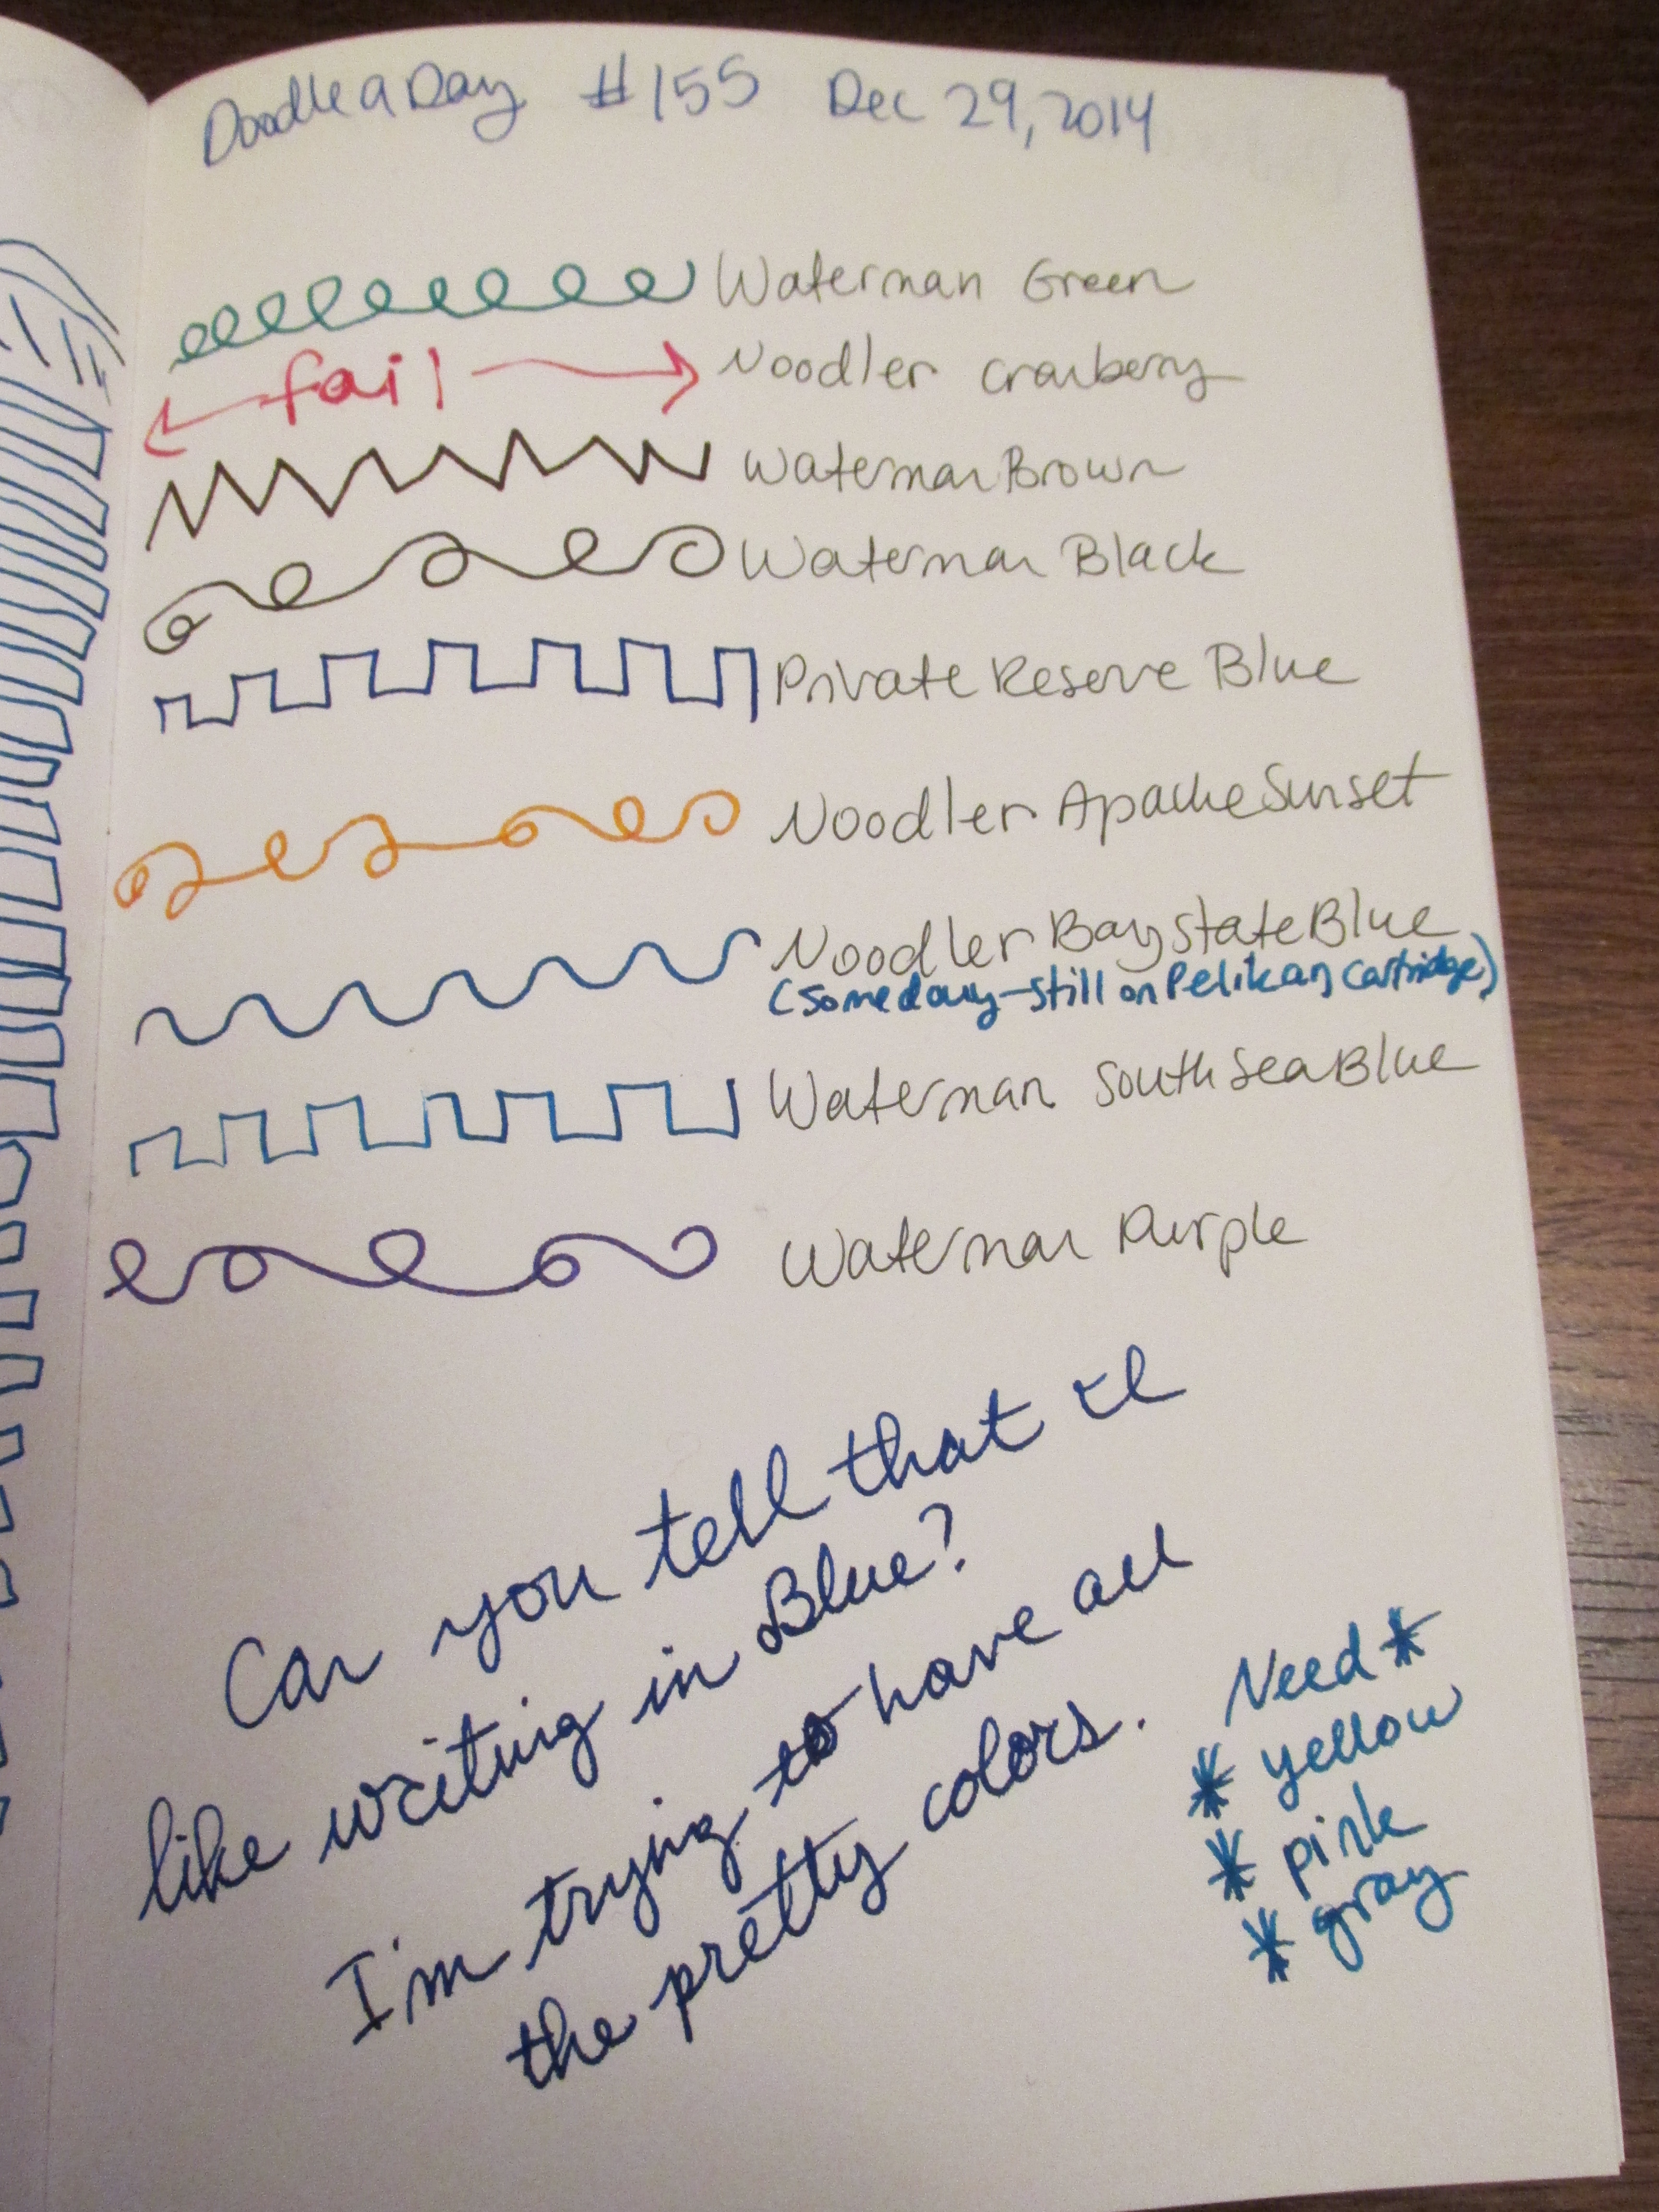 Doodle a Day #155 Dec 29, 2014
Waterman Green
fail Noodler Cranberry
Waterman Brown
Waterman Black
Private Reserve Blue
Noodler Apache Sunset
Noodler Baystate Blue
(someday-still on Pelikan cartridge)
Waterman South Sea Blue
Waterman Purple
Can you tell that I
like writing in Blue?
I'm trying to have all
the pretty colors.
Need *
* yellow
* pink
* gray